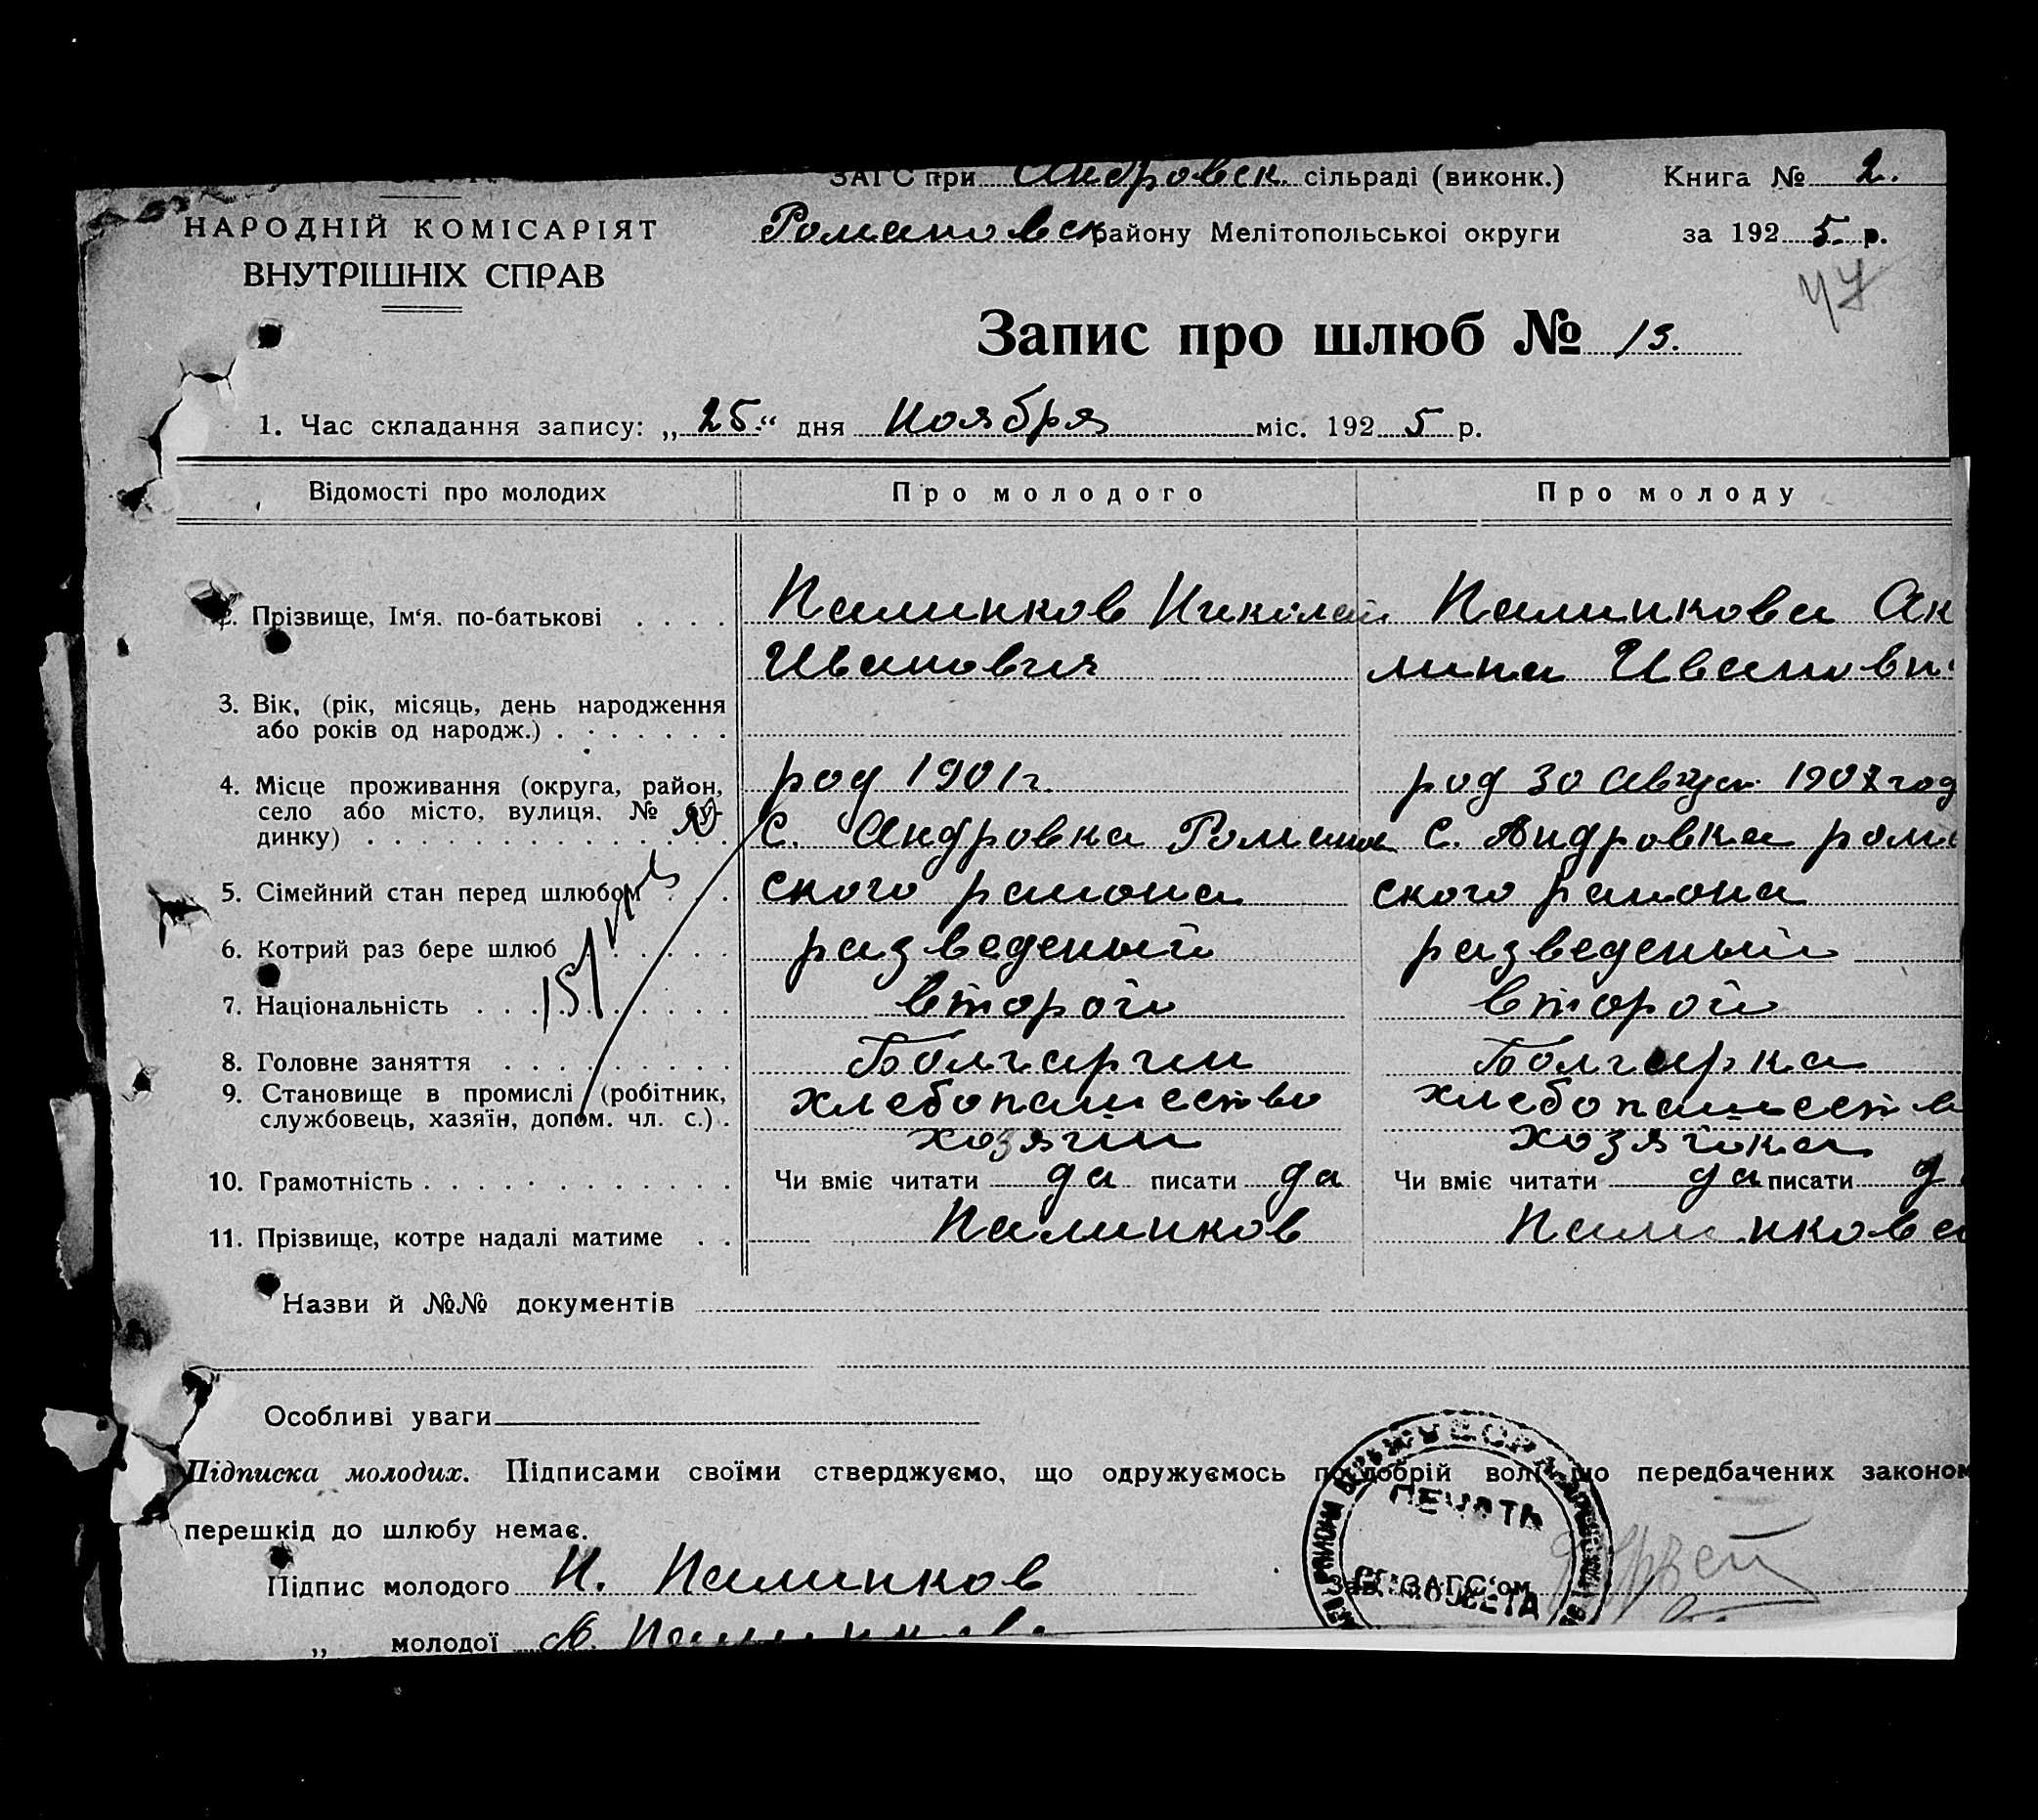 ЗАГС при Андровск. сільраді (виконк.) Книга № 2.
НАРОДНІЙ КОМІСАРІЯТ Романовск району Мелітопольської округи за 1925 р.
ВНУТРІШНІХ СПРАВ
47
Запис про шлюб № 13.
1. Час складання запису: „25“ дня Ноября міс. 1925 р.
Відомості про молодих Про молодого Про молоду
2. Прізвище, Ім‘я. по-батькові . . . . Палинков Николай Палинкова Ак
Иванович лина Ивановн
3. Вік, (рік, місяць, день народження
або років од народж.) . . . . . . .
4. Місце проживання (округа, район, род 1901г. род 30 Август 1907 год
село або місто, вулиця, № бу-
динку) . . . . . . . . . . . . . . С. Андровка Романов С. Андровка Рома
5. Сімейний стан перед шлюбом . . . ского района ского района
6. Котрий раз бере шлюб . . . . . . разведеный разведеный
7. Національність . . . . . . . . . . второй второй
8. Головне заняття . . . . . . . . . Болгарин Болгарка
9. Становище в промислі (робітник, хлебопашество хлебопашеств
службовець, хазяїн, допом. чл. с.) . хозяин хозяйка
10. Грамотність . . . . . . . . . . . . Чи вміє читати да писати да Чи вміє читати да писати д
11. Прізвище, котре надалі матиме . . Палинков Палинкова
Назви й №№ документів
Особливі уваги
Підписка молодих. Підписами своїми стверджуємо, що одружуємось по добрій волі, що передбачених законом
ПЕЧАТЬ
перешкід до шлюбу немає.
Підпис молодого Н. Палинков Зав. ЗАГС‘ом
„ молодої А. Палинкова